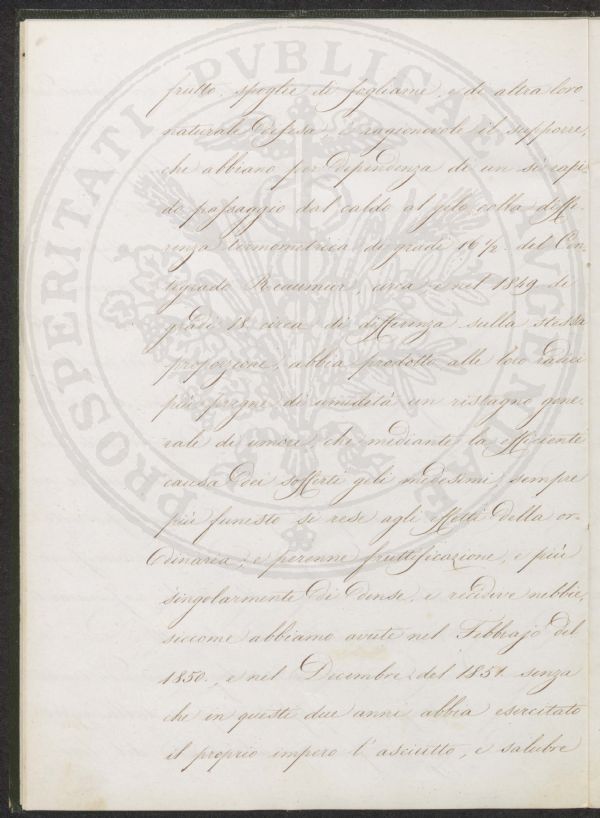 frutto, spoglie di fogliame, e di altra loro
naturale difesa, è ragionevole il supporre,
che abbiano per dipendenza di un sì rapi-
do passaggio dal caldo al gelo colla diffe-
renza termometrica di gradi 16 1/2 del Cen-
tigrado Reaumur, circa e nel 1849 di
gradi 18 circa di differenza sulla stessa
proporzione, abbia prodotto alle loro radici
più pregne di umidità un ristagno gene-
rale di umore, che mediante la efficiente
causa dei sofferti geli medesimi, sempre
più funesto si rese agli effetti della or-
dinaria, e perenne fruttificazione, e più
singolarmente di dense, e recidive nebbie,
siccome abbiamo avute nel Febbrajo del
1850., e nel Decembre del 1851. senza
che in questi due anni abbia esercitato
il proprio impero l'asciutto, e salubre
PROSPERITATI PVBLICAE AVGENDAE